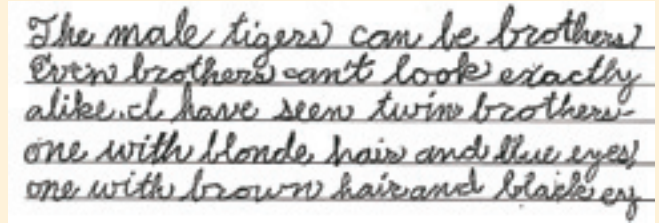 The male tigers can be brothers!
Even brothers can't look exactly
alike. I have seen twin brothers-
one with blonde hair and blue eyes,
one with brown hair and black ey